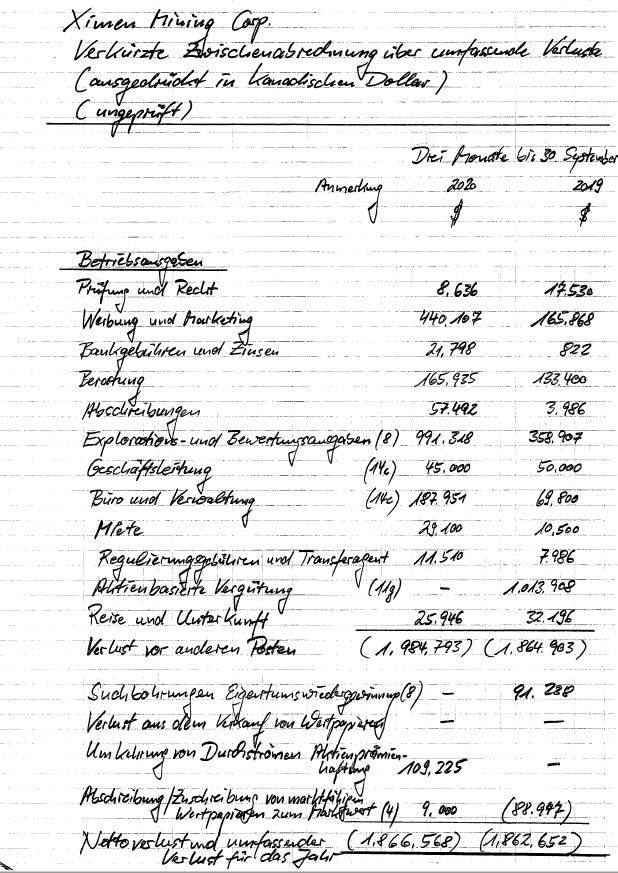 Ximen Mining Corp.
Verkürzte Zwischenabrechnung über umfassende Verluste
(ausgedrückt in kanadischen Dollar)
(ungeprüft)
Drei Monate bis 30 September
Anmerkung 2020 2019
$ $
Betriebsausgaben
Prüfung und Recht 8,636 17.530
Werbung und Marketing 440.107 165,868
Bankgebühren und Zinsen 21,798 822
Beratung 165,935 133,400
Abschreibungen 57.492 3.986
Explorations- und Bewertungsausgaben (8) 991.318 358.907
Geschäftsleitung (14c) 45.000 50,000
Büro und Verwaltung (14c) 187.951 69,800
Miete 29,100 10,500
Regulierungsgebühren und Transferagent 11.510 7.986
Aktienbasierte Vergütung (11g) – 1,013,908
Reise und Unterkunft 25.946 32.196
Verlust vor anderen Posten (1,984,793) (1.864.903)
Suchbohrungen Eigentumswiedergewinnung (8) – 91.238
Verlust aus dem Verkauf von Wertpapieren – –
Umkehrung von Durchströmen Aktienprämien-
haftung 109,225 –
Abschreibung/Zuschreibung von marktfähigen
Wertpapieren zum Marktwert (4) 9.000 (88.997)
Nettoverlust und umfassender (1,866,568) (1,862,652)
Verlust für das Jahr